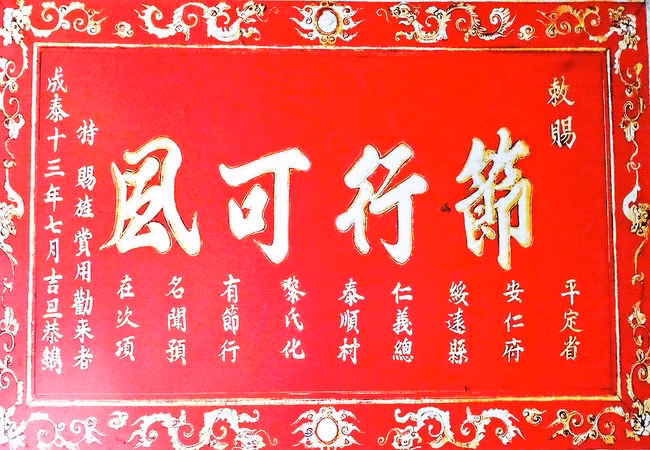 敕賜
節行可風
平定省
安仁府
綏遠縣
仁義總
泰順村
黎氏化
有節行
名聞預
在次項
特賜旌賞用勸來者
成泰十三年七月吉旦恭鐫